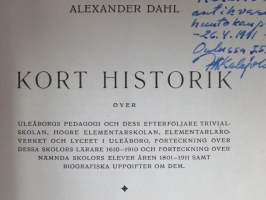 ALEXANDER DAHL
KORT HISTORIK
ÖVER
ULEÅBORGS PEDAGOGI OCH DESS EFTERFÖLJARE TRIVIAL-
SKOLAN, HÖGRE ELEMENTARSKOLAN, ELEMENTARLÄRO-
VERKET OCH LYCEET I ULEÅBORG, FÖRTECKNING ÖVER
DESSA SKOLORS LÄRARE 1610—1910 OCH FÖRTECKNING ÖVER
NÄMNDA SKOLORS ELEVER ÅREN 1801—1911 SAMT
BIOGRAFISKA UPPGIFTER OM DEM.